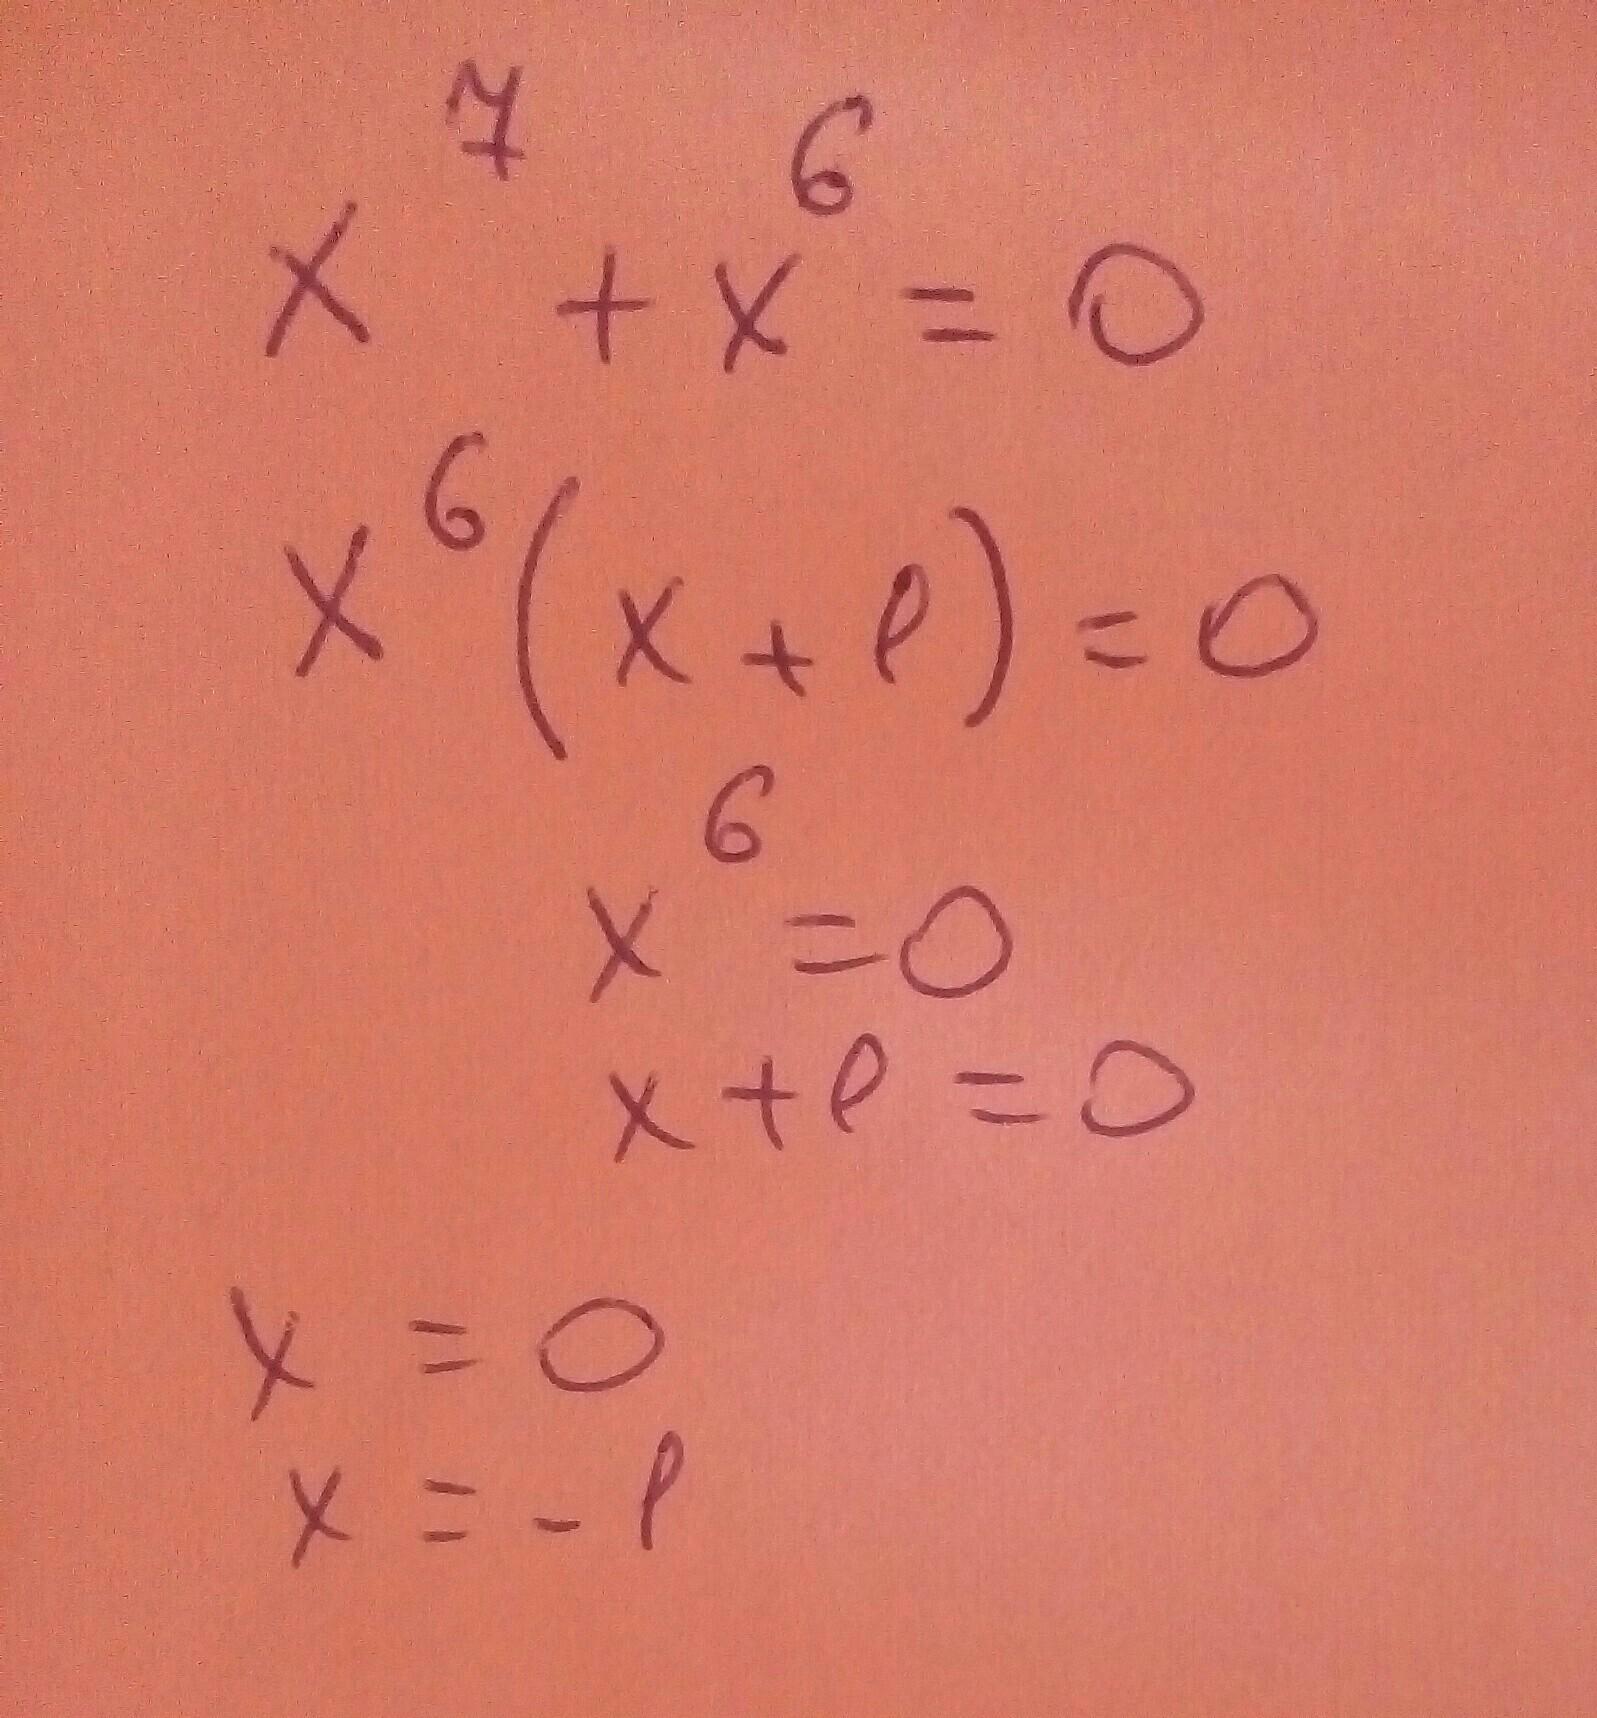 x⁷ + x⁶ = 0
x⁶(x + 1) = 0
x⁶ = 0
x + 1 = 0
x = 0
x = - 1